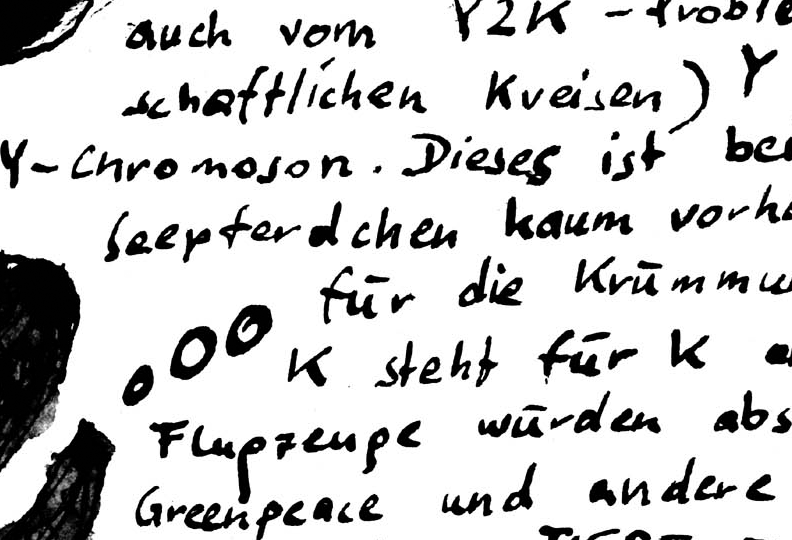 auch vom Y2K-Proble
schaftlichen Kreisen) Y
Y-Chromoson. Dieses ist be
Seepferdchen kaum vorha
für die Krümmu
K steht für K a
Flugzeuge würden abs
Greenpeace und andere